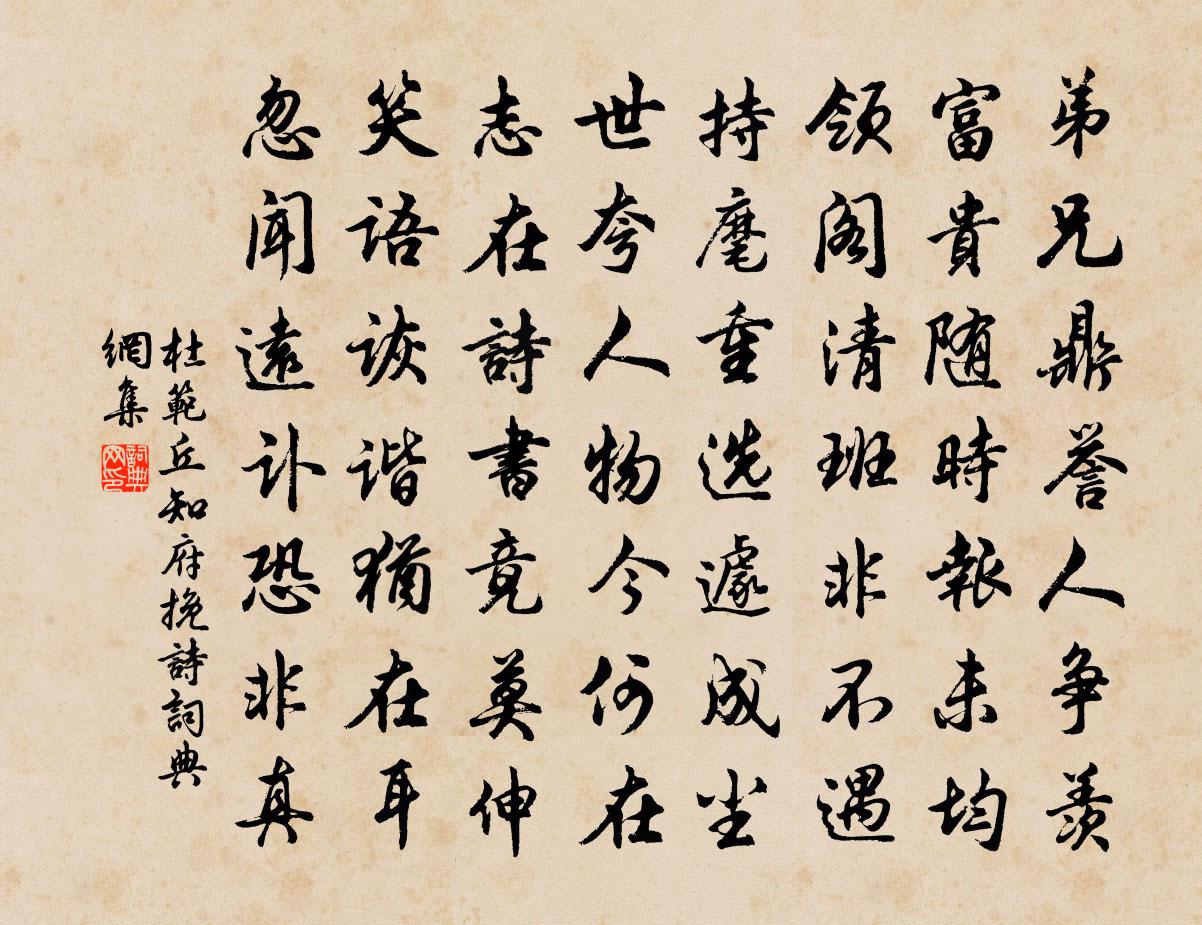 弟兄鼎誉人争羨
富貴随時報未均
領阁清班非不遇
持麾重选遽成尘
世夸人物今何在
志在詩書竟莫伸
笑語诙谐猶在耳
忽闻遠讣恐非真
杜範丘知府挽詩詞典
網集
詞典网印